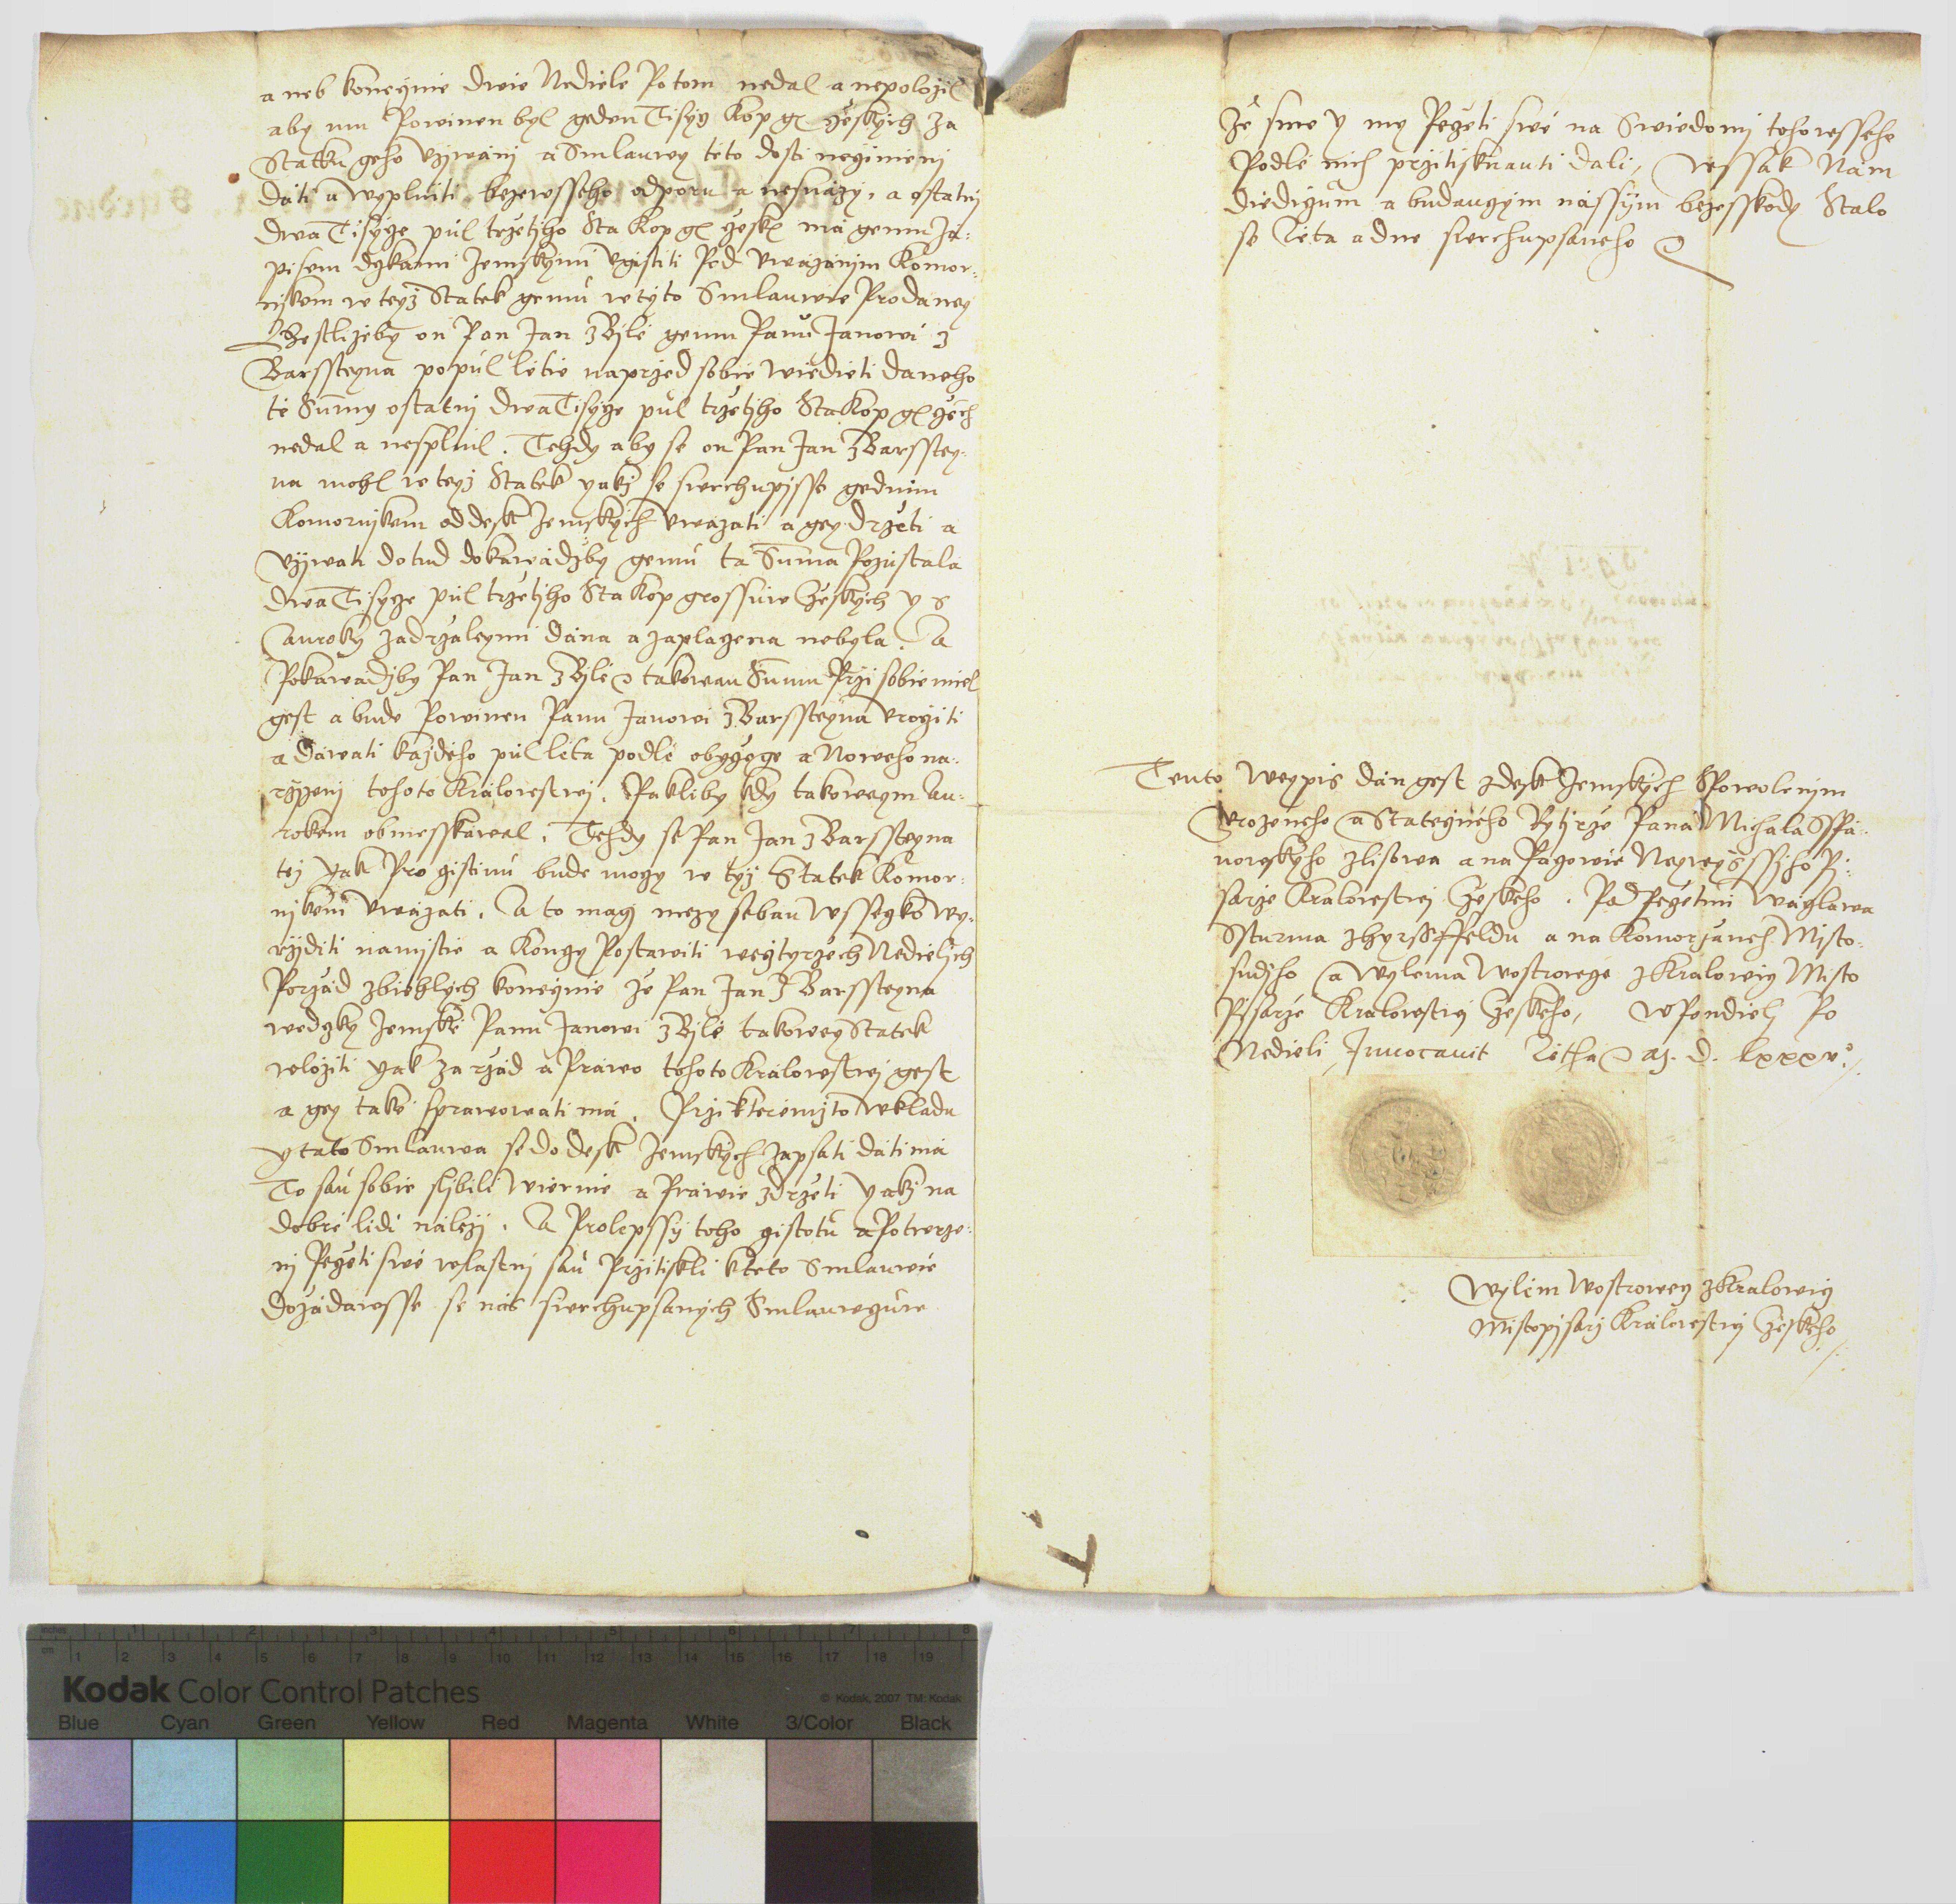 a neb konečnie dwie Nediele Potom nedal a nepoložil
aby mu Powinen byl geden Tisyc Kop gr českých za
Statku geho Užiwánj a Smlauwy této dosti nečiněnj
dáti a wyplniti, bezewsseho odporu a nesnázy, a ostatnj
dwa Tisyce púl tržetjho Sta Kop gr česk má gemu Zá:
pisem dskami Zemskými Ugistiti Pod Uwázánjm Komor:
njkem w teyž Statek gemu w této Smlauwie Prodaney
Gestližeby on Pan Jan z Bjlé gemu Panu Janowi z
Barssteyna popúl létie naprzed sobie wiedieti daneho
té Summy ostatnj dwa Tisyce púl tržetjho Sta Kop gr čch
nedal a nesplnil. Tehdy aby se on Pan Jan z Barsstey:
na mohl w teyž Statek yakž se swrchupjsse gednim
Komornjkem od desk Zemských Uwázati a gey držeti a
Užjwati dotud dokawádžby gemu ta Summa Pozustala
dwa Tisyce púl tržetjho Sta Kop grossuow českých y s
auroky zadržaleymi dána a zaplacena nebyla. A
Pokawádžby Pan Jan z Bjlé takowau Summu Przi sobie miel
gest a bude Powinen Panu Janowi z Barssteyna Uročiti
a Dáwati každého púl léta podlé obyčege a Noweho na:
rzjzenj tohoto Králowstwj. Pakliby kdy takoweym Au:
rokem obmesskáwal. Tehdy se Pan Jan z Barssteyna
též yak Pro gistinu bude mocy w tyž Statek Komor:
njkem Uwázati. A to magj mezy sebau Wssecko wy:
rzjditi namjstie a Koncy Postawiti wečtyrzech Nedieljch
Porzád zbiehlých konečnie že Pan Jan z Barssteyna
wedcky Zemské Panu Janowi z Bjlé takowey Statek
wložiti yak za rzád a Práwo tohoto Králowstwj gest
a gey také sprawowati má. Przi kterémžto Wkladu
y tato Smlauwa se do desk Zemských zapsati dáti má
To sau sobie sljbili Wiernie a Práwie zdržeti yakž na
dobré lidi náležj. A Prolepssy toho gistotu a Potwrze:
nj Pečeti swé wlastnj sau Przitiskli k této Smlauwie
Dožádawsse se nás swrchupsaných Smlauwcuow
Že sme y my Pečeti swé na Swiedomj tohowsseho
Podlé nich przitisknauti dali, Wssak Nám
Diedicum a budaucým nassým bezesskody Stalo
se Léta a dne swrchupsaneho
Tento Weypis dán gest z desk Zemských S Powolenjm
Urozeneho a Statečného Rytjrze Pana Michala Sspa:
nowskýho z Lisowa a na Pacowie Neywyssjho Pj:
sarze Králowstwj Českeho. Pod Pečetmi Wáclawa
Ssturma z Hyrssffeldu a na Komorzanech Místo:
sudjho a Wylema Wostroweце z Kralowic Místo
Pjsarze Králowstwj Českeho, W Pondielj Po
Nedieli Inuocauit Létha M. D. Lxxxv.
Wylém Wostrowec z Kralowic
Mistopjsarz Králowstwj Českeho
Kodak Color Control Patches
© Kodak, 2007 TM: Kodak
Blue Cyan Green Yellow Red Magenta White 3/Color Black